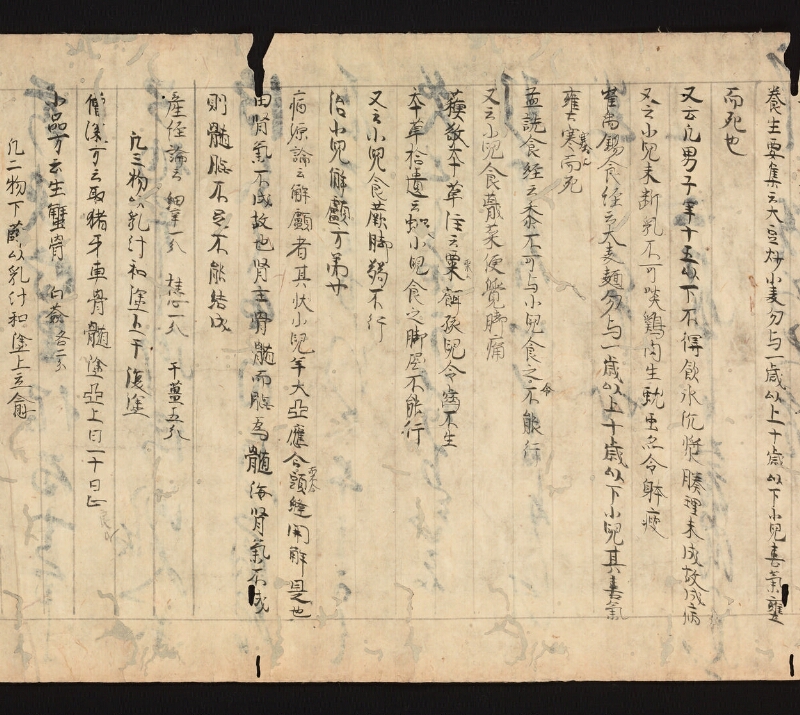 養生要集云大豆炒小麦勿与一歳以上十歳以下小児喜氣壅
而死也
又云凡男子年十五以下不得飲水沉悟腠理未成故成病
又云小児未断乳不可啖鶏肉生蚘虫忽令躰瘦
崔禹錫食経云大麦麺勿与一歳以上十歳以下小児其喜氣
壅塞而死
孟詵食経云黍不可与小児食之令不能行
又云小児食蕺菜便覺脚痛
蘇敬本草注云粟餌孩児令齒不生
本草拾遺云小児食之脚屈不能行
又云小児食蕨脚弱不行
治小児解顱方第廿
病源論云解顱者其状小児年大囟應合而不合頭縫開解是也
由腎氣不成故也腎主骨髄而脳為髄海腎氣不成
則髄脳不足不能結成
産経論云細辛一分 桂心一分 干薑五分
凡三物以乳汁和塗上干復塗
僧深方云取猪牙車骨髄塗囟上日一十日止
小品方云生蟹骨 白蘞各一分
凡二物下篩以乳汁和塗上立愈